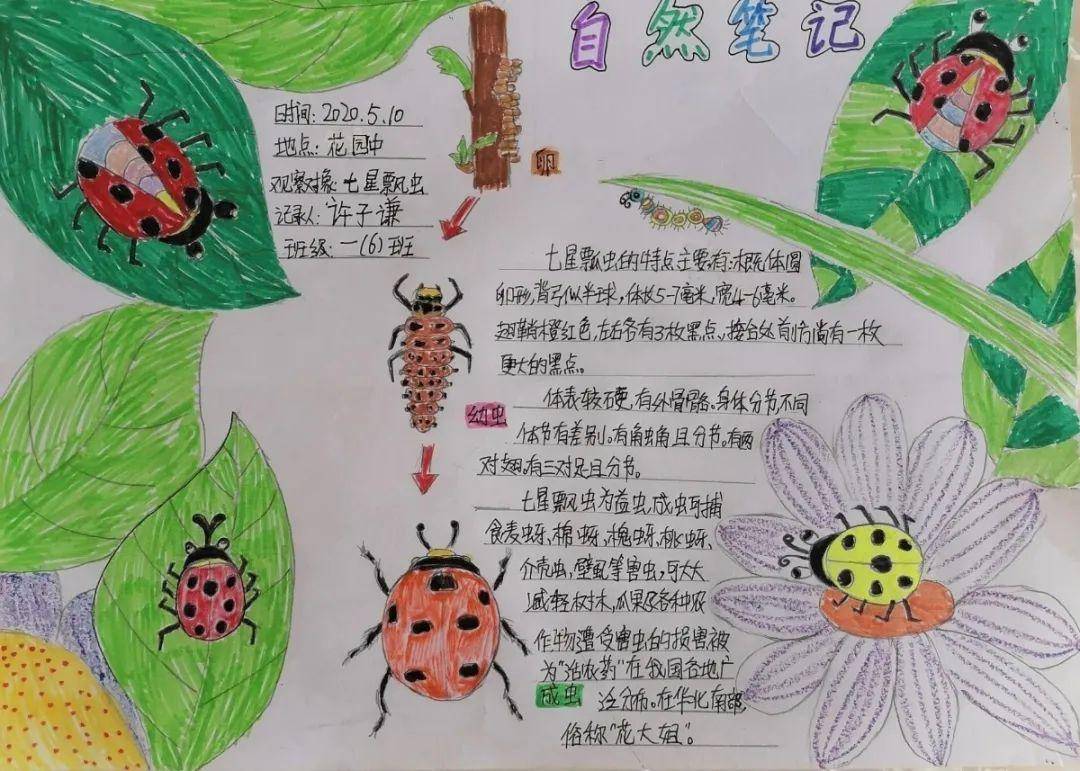 自然笔记
日期: 2020.5.10
地点: 花园中
观察对象: 七星瓢虫
记录人: 许子谦
班级: 一(6)班
卵
七星瓢虫的特点主要有:概体圆
卵形,背弓似半球,体长5-7毫米,宽4-6毫米。
翅鞘橙红色,左右各有3枚黑点,接合处前方尚有一枚
更大的黑点。
幼虫
体表较硬,有外骨骼。身体分节,不同
体节有差别。有角虫角且分节。有两
对翅,有三对足且分节。
七星瓢虫为益虫,成虫可捕
食麦蚜、棉蚜、槐蚜、桃蚜、
介壳虫,壁虱等害虫,可大大
减轻树木,瓜果及各种农
作物遭受害虫的损害被
为"活农药"在我国各地广
成虫
泛分布。在华北南部,
俗称"花大姐"。